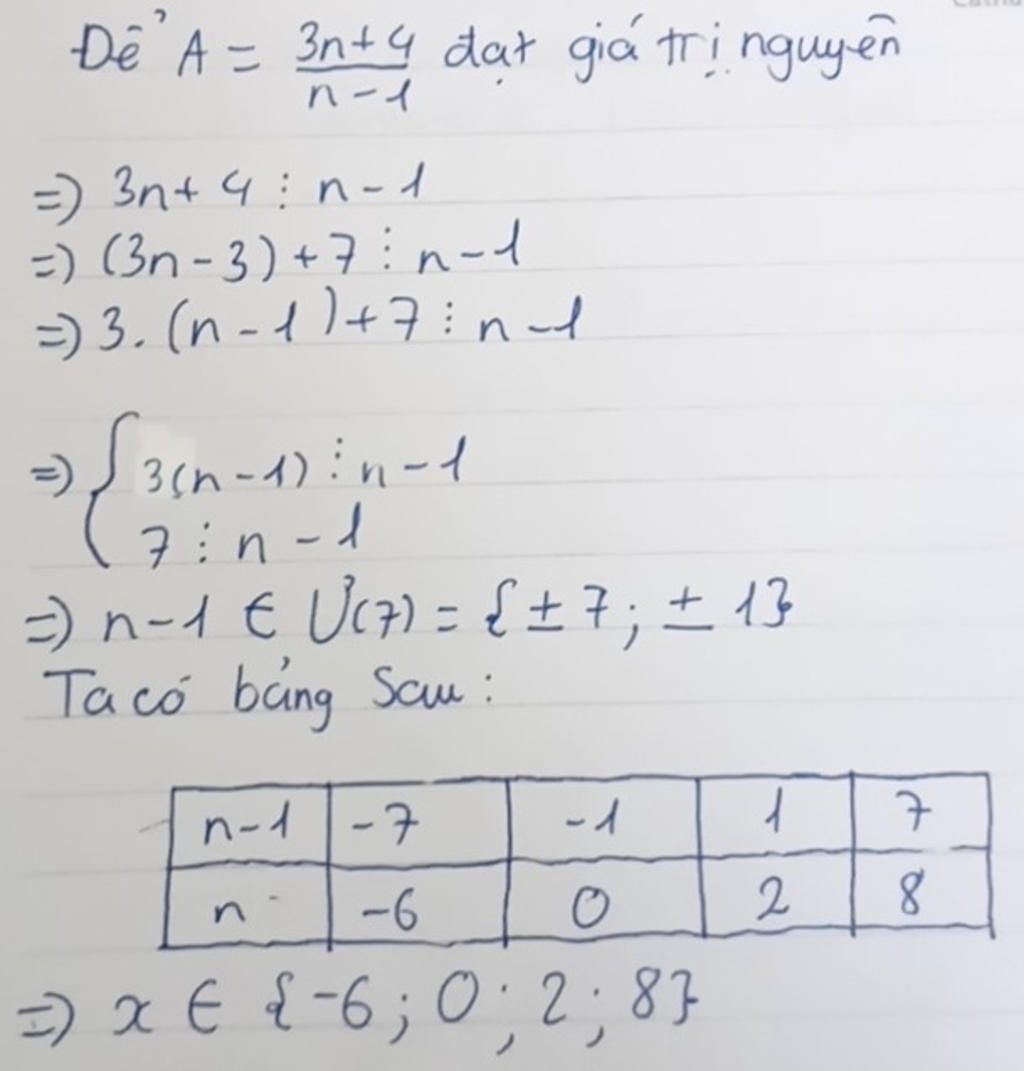 Để A = \frac{3n+4}{n-1} đạt giá trị nguyên
=) 3n+4 ⋮ n-1
=) (3n-3)+7 ⋮ n-1
=) 3.(n-1)+7 ⋮ n-1
=) { 3(n-1) ⋮ n-1
7 ⋮ n-1
=) n-1 ∈ Ư(7) = {±7; ±1}
Ta có bảng sau:
n-1 -7 -1 1 7
n -6 0 2 8
=) x ∈ {-6; 0; 2; 8}